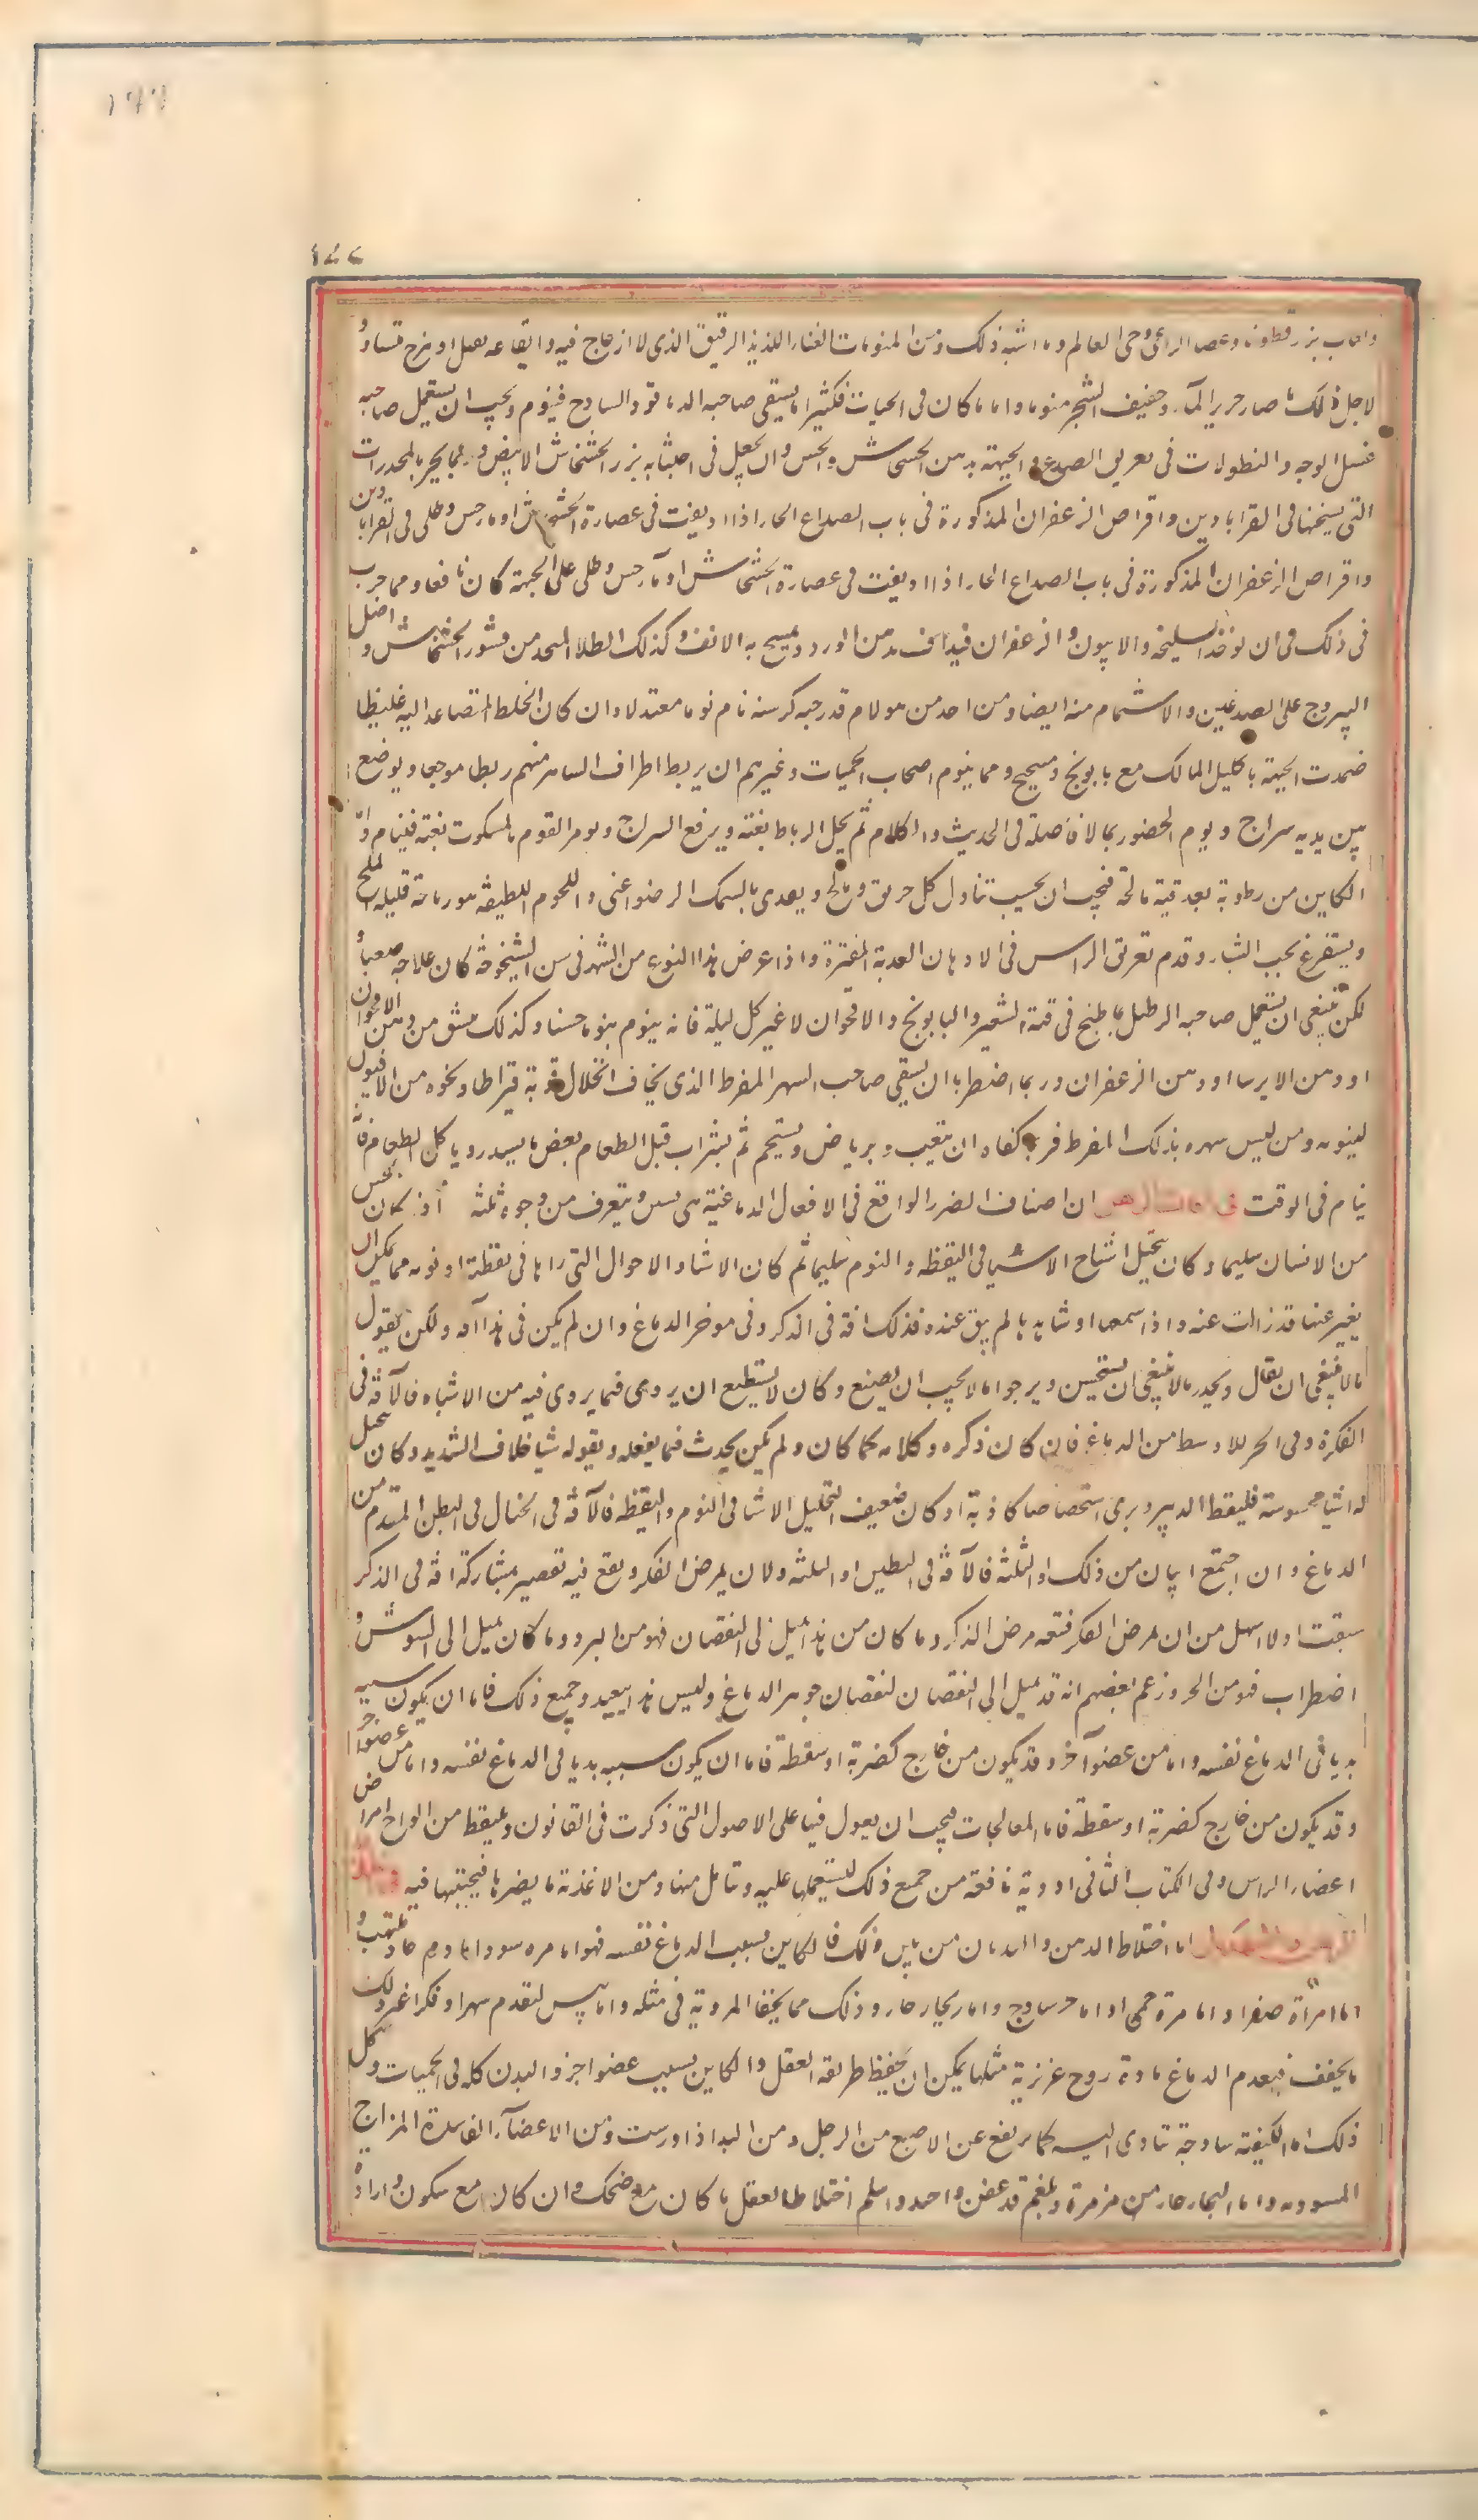 ولعاب بزر قطونا وعصا الراعى وحى العالم وما اشبه ذلك ومن المنومات الغناء اللذيذ الرقيق الذى لا ازعاج فيه وايقاعه ثقيل او هزج متساو و
لاجل ذلك ما صار خرير المآء وحفيف الشجر منوما واما ما كان فى الحميات فكثيرا ما يسقى صاحبه الدياقودا السادج فينوم ويجب ان يستعمل صاحبه
غسل الوجه والنطولات فى تعريق الصدغ والجبهة بدهن الخشخاش والخس وان يجعل فى احشائه بزر الخشخاش الابيض وربما بخر بالمخدرات
التى نسختها فى القرابادين واقراص الزعفران المذكورة فى باب الصداع الحار اذا ديفت فى عصارة الخشخاش او ماء خس وطلى فى القرابادين
واقراص الزعفران المذكورة فى باب الصداع الحار اذا ديفت فى عصارة الخشخاش او مآء خس وطلى على الجبهة كان نافعا ومما جرب
فى ذلك فى ان يوخذ السليخه والافيون والزعفران فيداف بدهن الورد ويمسح به الانف وكذلك الطلاء المتخذ من قشور الخشخاش واصل
اليبروج على الصدغين والاشتمام منه ايضا ومن اخذ من هولاء قدر حبه كرسنه نام نوما معتدلا وان كان الخلط المتصاعد اليه غليظا
ضمدت الجبهة باكليل الملك مع بابونج وميبختج ومما ينوم اصحاب الحميات وغيرهم ان يربط اطراف الساهر منهم ربطا موجعا ويوضع
بين يديه سراج ويوم الحضور بالافاضة فى الحديث والكلام ثم يحل الرباط بغتة ويرفع السراج ويومر القوم بالسكوت بغتة فينام واما
الكاين من رطوبة بورقية مالحة فيجب ان يجتنب تناول كل حريف ومالح ويغذى بالسمك الرضراضى واللحوم اللطيفة شورباجة قليلة الملح
ويستفرغ بحب الشبيار وقدم تعريق الراس فى الادهان العذبة المفترة واذا عرض هذا النوع من السهر فى سن الشيخوخة كان علاجه صعبا و
لكن ينبغى ان يستعمل صاحبه الرطل ماء طبخ فيه الشعير والبابونج والاقحوان لا غير كل ليلة فانه ينوم تنويما حسنا وكذلك ينشق من دهن الاقحوان
او دهن الايرسا او دهن الزعفران وربما اضطررنا ان نسقى صاحب السهر المفرط الذى يخاف انحلال قوته قيراطا ونحوه من الافيون
لينومه ومن ليس سهره بذلك المفرط فربما كفاه ان يتعب ويرتاض ويستحم ثم يشرب قبل الطعام بعض ما يسدر وياكل الطعام فانه
ينام فى الوقت فى افات الذهن ان اصناف الضرر الواقع فى الافعال الدماغية هى ست ويتعرف من وجوه ثلثة اذ كان الحس
من الانسان سليما وكان يتخيل اشباح الاشيا فى اليقظه والنوم سليما ثم كان الاشيا والاحوال التى راها فى يقظته او نومه مما يمكن ان
يعبر عنها قد زالت عنه واذا سمعها او شاهدها لم يبق عنده فذلك افة فى الذكر وفى موخر الدماغ وان لم يكن فى هذا آفه ولكن يقول
ما لا ينبغى ان يقال ويحذر ما لا ينبغى ان يستحسن ويرجو ما لا يجب ان يصنع وكان لا يستطيع ان يروى فيما يروى فيه من الاشياه فالآفة فى
الفكرة وفى الجزء الاوسط من الدماغ فان كان ذكره وكلامه كما كان ولم يكن يحدث فيما يفعله ويقوله شيا خلاف الشديد وكان يتخيل
له اشيا محسوسة فيلتقط الزبير ويرى اشخاصا كاذبة او كان ضعيف التخيل الاشيا فى النوم واليقظه فالآفة فى الخيال فى البطن المقدم من
الدماغ وان اجتمع اثنان من ذلك او الثلثة فالآفة فى البطنين او الثلثه ولان يمرض الفكر ويقع فيه تقصير بمشاركة افة فى الذكر
سبقت اولا اسهل من ان يمرض الفكر فيتبعه مرض الذكر وما كان من هذا يميل الى النقصان فهو من البرد وما كان يميل الى التشوش و
اضطراب فهو من الحر وزعم بعضهم انه قد يميل الى النقصان لنقصان جوهر الدماغ وليس هذا ببعيد وجميع ذلك فاما ان يكون سببه
بديا فى الدماغ نفسه واما من عضو آخر وقد يكون من خارج كضربة او سقطة فاما ان يكون سببه بديا فى الدماغ نفسه واما من عضو آخر
وقد يكون من خارج كضربة او سقطة فاما المعالجات فيجب ان يعول فيها على الاصول التى ذكرت فى القانون وتلتقط من الواح امراض
اعضاء الراس وفى الكتاب الثانى ادوية نافعة من جميع ذلك لتستعملها عليه وتامل منها ومن الاغذية ما يضرها فيجتنبها فيه
اما اختلاط الذهن والهذيان من بين ذلك فالكاين بسبب الدماغ نفسه فهو اما مره سوداء او دم حاد ملتهب و
اما مرة صفرا واما مرة حمى او اما حر سادج واما بخار حار وذلك مما يخف المرونة فى مثله واما يبس لتقدم سهر او فكر او غير ذلك
ما يجفف فيعدم الدماغ مادة روح غريزية مثلها يمكن ان يحفظ طريقة العقل والكاين بسبب عضو اخر والبدن كله فى الحميات وكل
ذلك اما لكيفية سادجة تتادى اليه كما يرتفع عن الاصبع من الرجل ومن اليد اذا ورمت ومن الاعضآء الفاسدة المزاج
المتورمه واما البخار حار من مرة وبلغم قد عفن واحتد واسلم اختلاط العقل ما كان مع ضحك وان كان مع سكون واراد